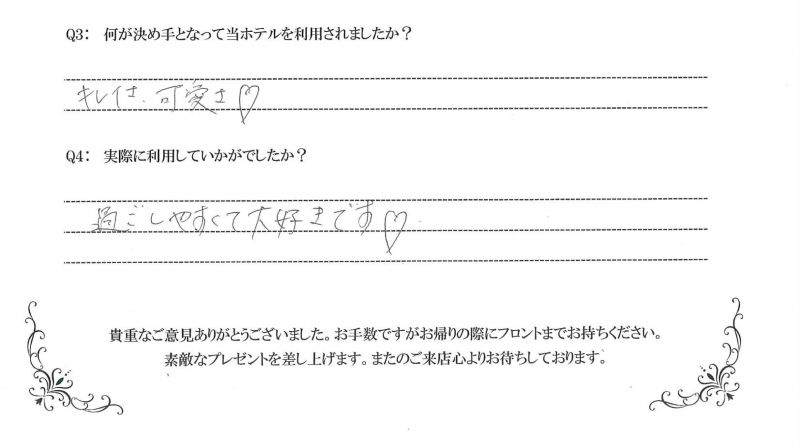 Q3: 何が決め手となって当ホテルを利用されましたか？
キレイさ、可愛さ♡
Q4: 実際に利用していかがでしたか？
過ごしやすくて大好きです♡
貴重なご意見ありがとうございました。お手数ですがお帰りの際にフロントまでお持ちください。
素敵なプレゼントを差し上げます。またのご来店心よりお待ちしております。